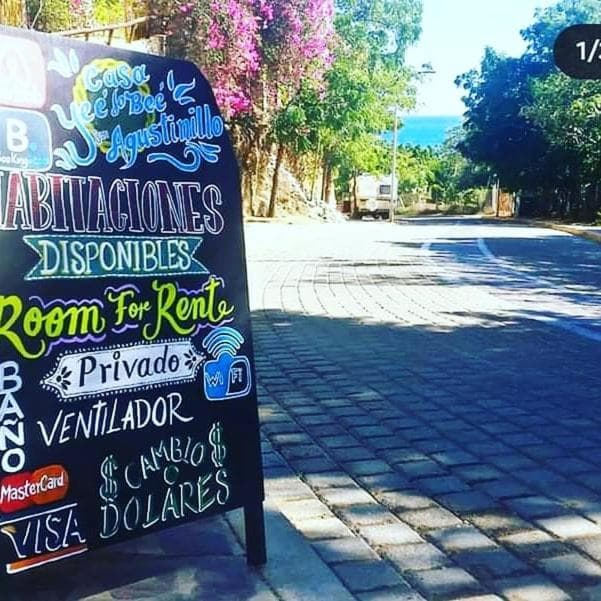 1/
B.
Booking
Casa
Yeé lo Beé
San Agustinillo
HABITACIONES
DISPONIBLES
Room For Rent
Privado
WiFi
BAÑO
VENTILADOR
MasterCard
VISA
$ CAMBIO $
DOLARES